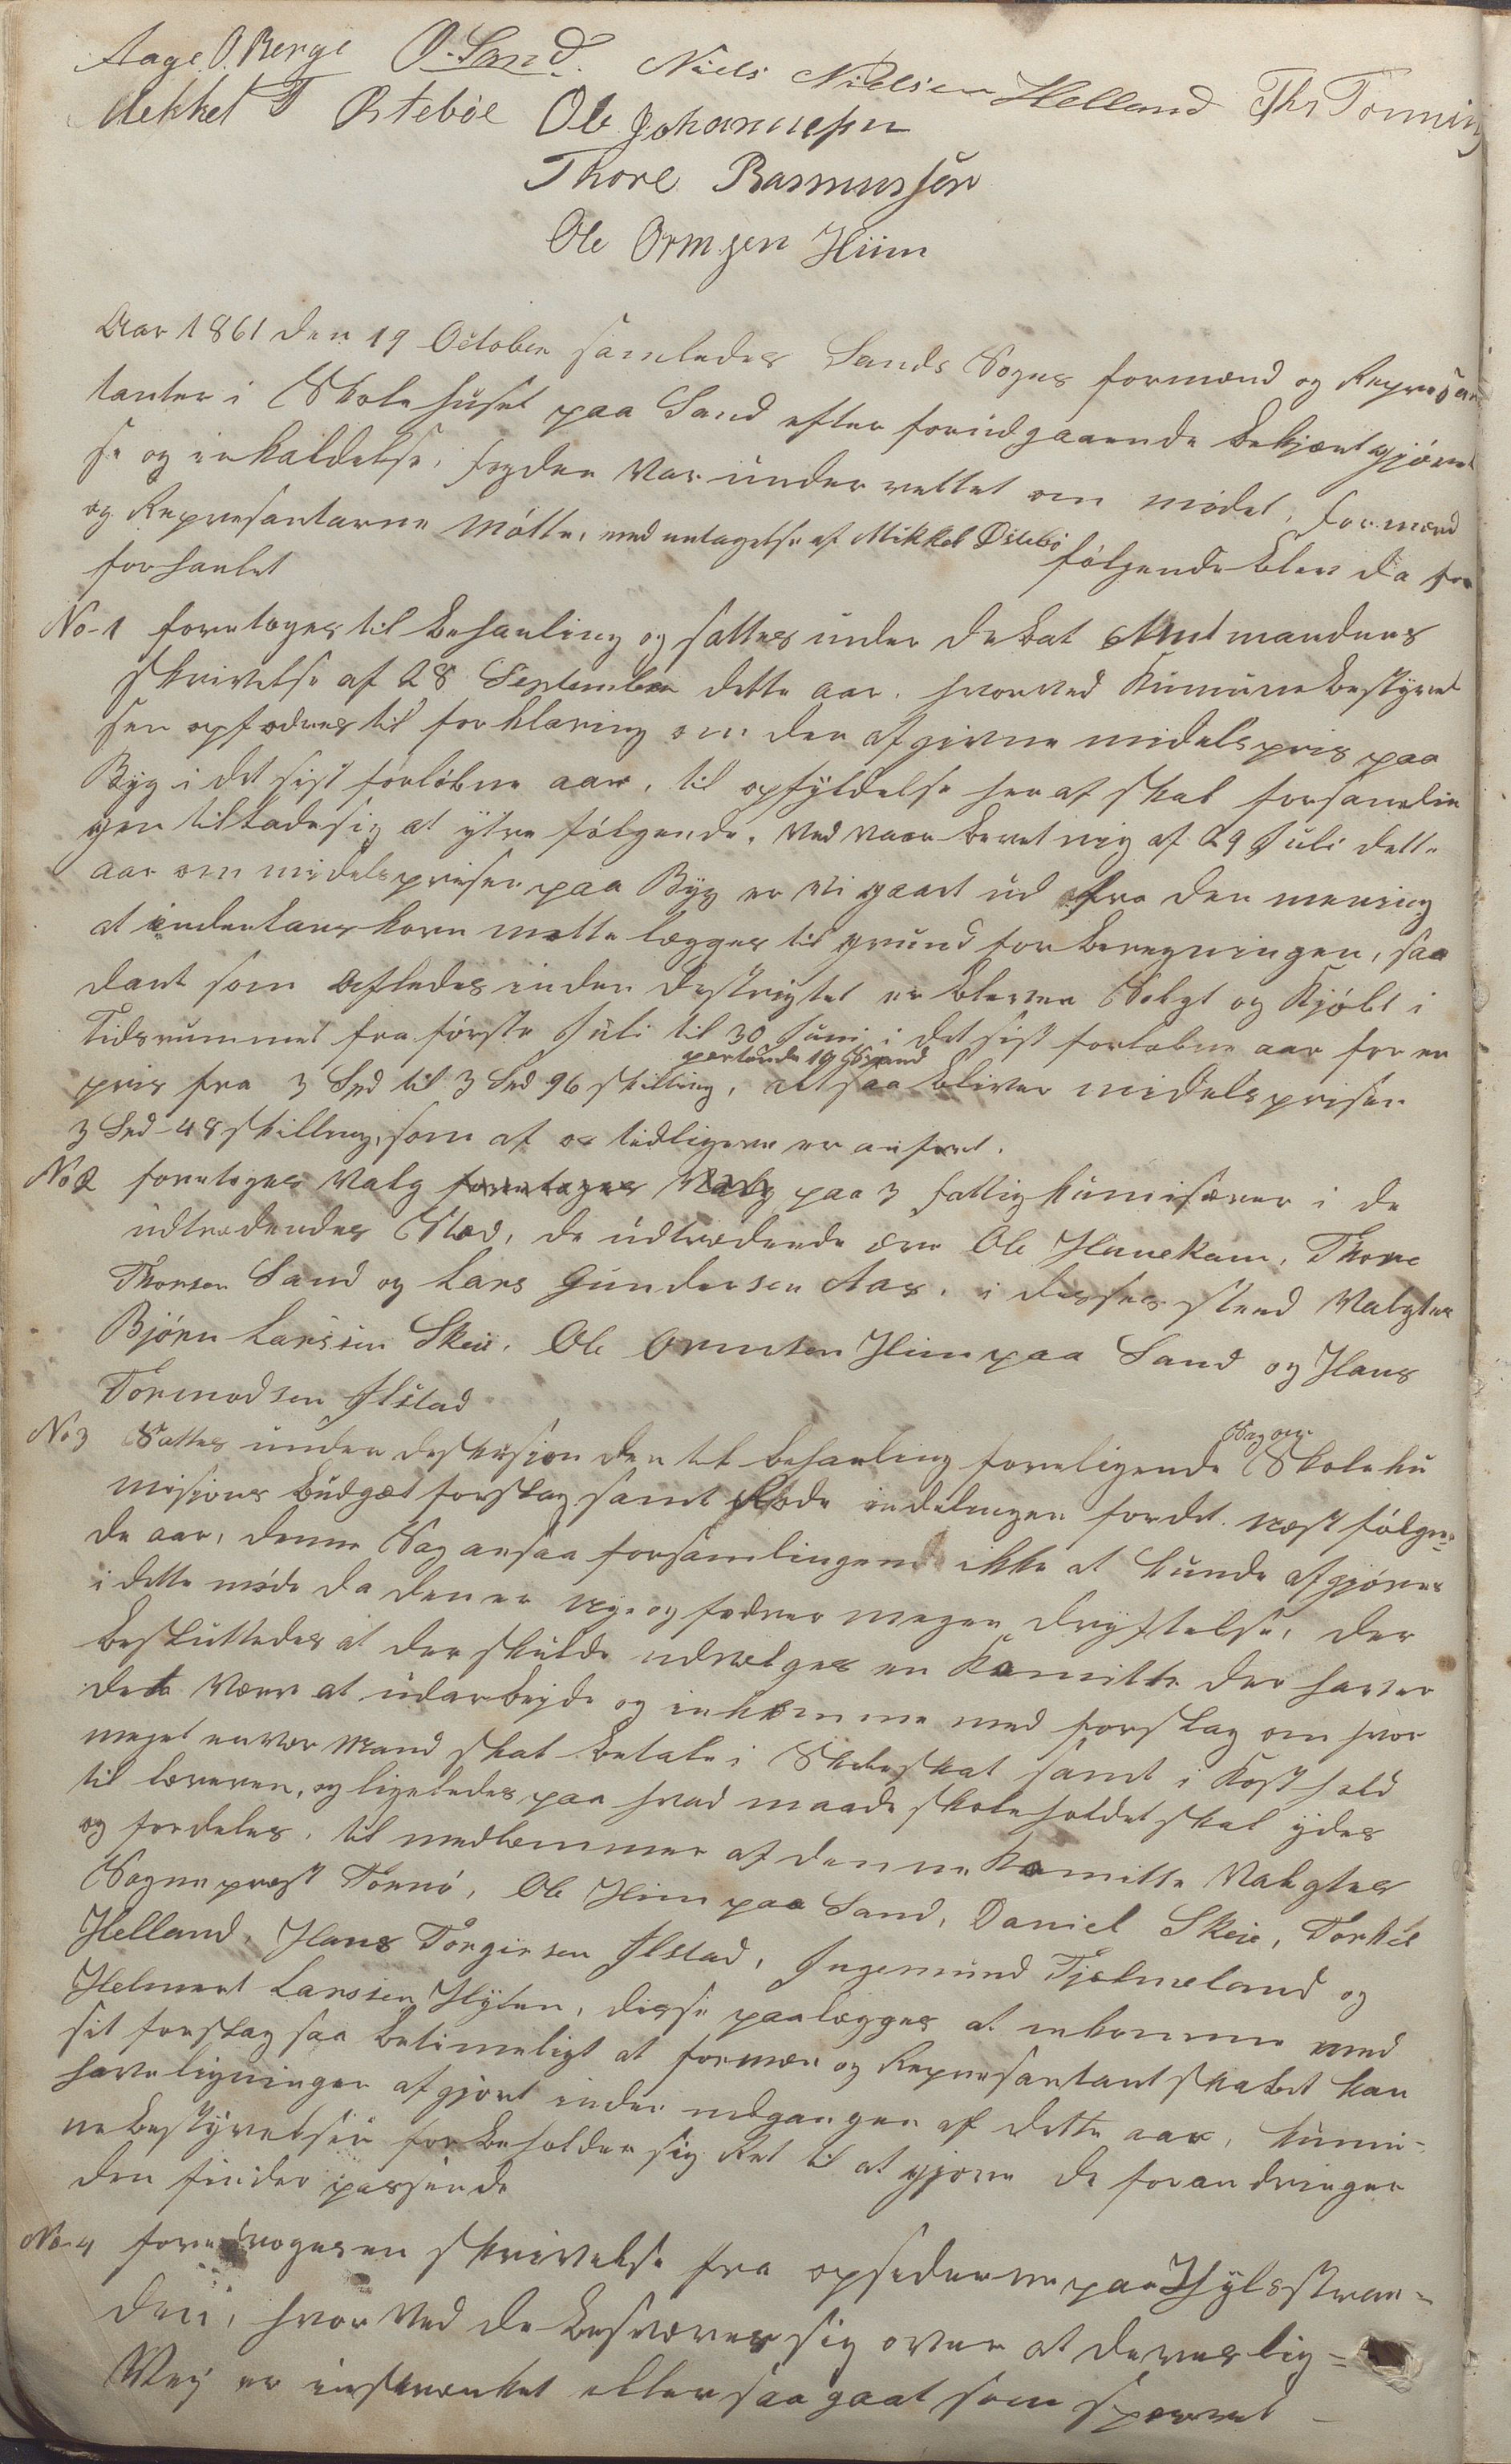 Aage O. Berge O. Sand. Niels Nielsen Helland Thr Tonning
Mekkel T Østebøe Ole Johannesen
Thore Rasmussen
Ole Ormsen Hiim
Aar 1861 den 19 October samledes Sands Sogns formænd og Represæn
tanter i Skolehuset paa Sand efter forudgaaende bekjentgjørel
se og inkaldelse, fogden var underrettet om mødet, formænd
og Represantarne møtte, med untagelse af Mikkel Østebø følgende blev da for
hanlet
No 1 foretoges til behanling og sattes under debat Amtmandens
skrivelse af 28 September dette aar. hvorved Kumunebestyrel
sen opfodres til forklaring om den afgivne midelspris paa
Byg i det sist forløbne aar, til opfyldelse heraf skal forsamlin
gen tillade sig at ytre følgende. ved vaar beretnig af 29 Juli dette
aar om midelsprisen paa Byg er vi gaaet ud fra den mening
at indenlans korn motte lægges til grund for beregningen, saa
dant som afledes inden destrigtet er bleven Solgt og Kjøbt i
Tidsrummet fra første Juli til 30 Juni i det sist forløbne aar for en
pris fra 3 Spd til 3 Spd 96 skilling, pertønde altsaa bliver midelsprisen
3 Spd 48 skilling, som af os tidligere er anført.
No 2 foretoges Valg foretoges Valg paa 3 fattigkumisærer i de
udtrædendes Sted, de udtrædende ere Ole Hiimekam, Thore
Thorsen Sand og Lars Gundersen Aas, i disses sted Valgtes
Bjørn Larsen Skeie, Ole Ormsen Hiim paa Sand og Hans
Tormodsen Ilstad
No 3 Sattes under deskusion den til behanling foreligende Sag om Skoleku
misions budgæt forslag samt Rode indelingen for det næst følgen=
de aar, denne Sag ansaa forsamlingen ikke at kunde afgjøres
i dette møde da den er nye og fodrer megen drøftelse, der
besluttedes at der skulde udvælges en Komitte der haver
det Værv at udarbejde og inkomme med forslag om hvor
meget enver Mand skal betale i Skoleskat samt i Kosthold
til læreren, og ligeledes paa hvad maade skoleholdet skal ydes
og fordeles, til medlemmer af denne Komitte Valgtes
Sogneprest Tornø, Ole Hiim paa Sand, Daniel Skeie, Torkel
Helland, Hans Torgiersen Ilstad, Ingemund Fjelmeland og
Helmert Larssen Hylen, disse paalægges at inkomme med
sit forslag saa betimeligt at formæn og Represantantskabet kan
have ligningen afgjort inden udgangen af dette aar, kumu=
nebestyrelsen forbeholder sig Ret til at gjøre de forandringer
den finder passende
No 4 foredroges en skrivelse fra opsiderne paa Hylsstran=
den, hvorved de besværer sig over at deres lig=
Vej er inskrænket eller saa gaat som sperret